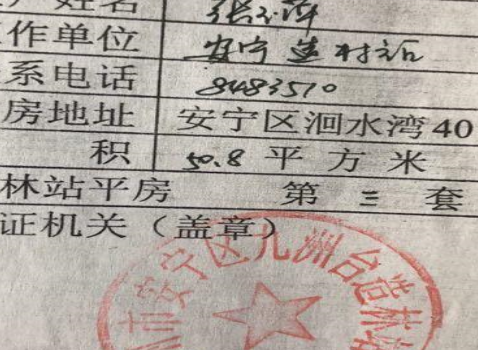 户姓名 张
工作单位 安宁建材站
系电话 8483510
房地址 安宁区洄水湾40
积 50.8平方米
林站平房 第三套
证机关（盖章）
州市安宁区九洲台造林站